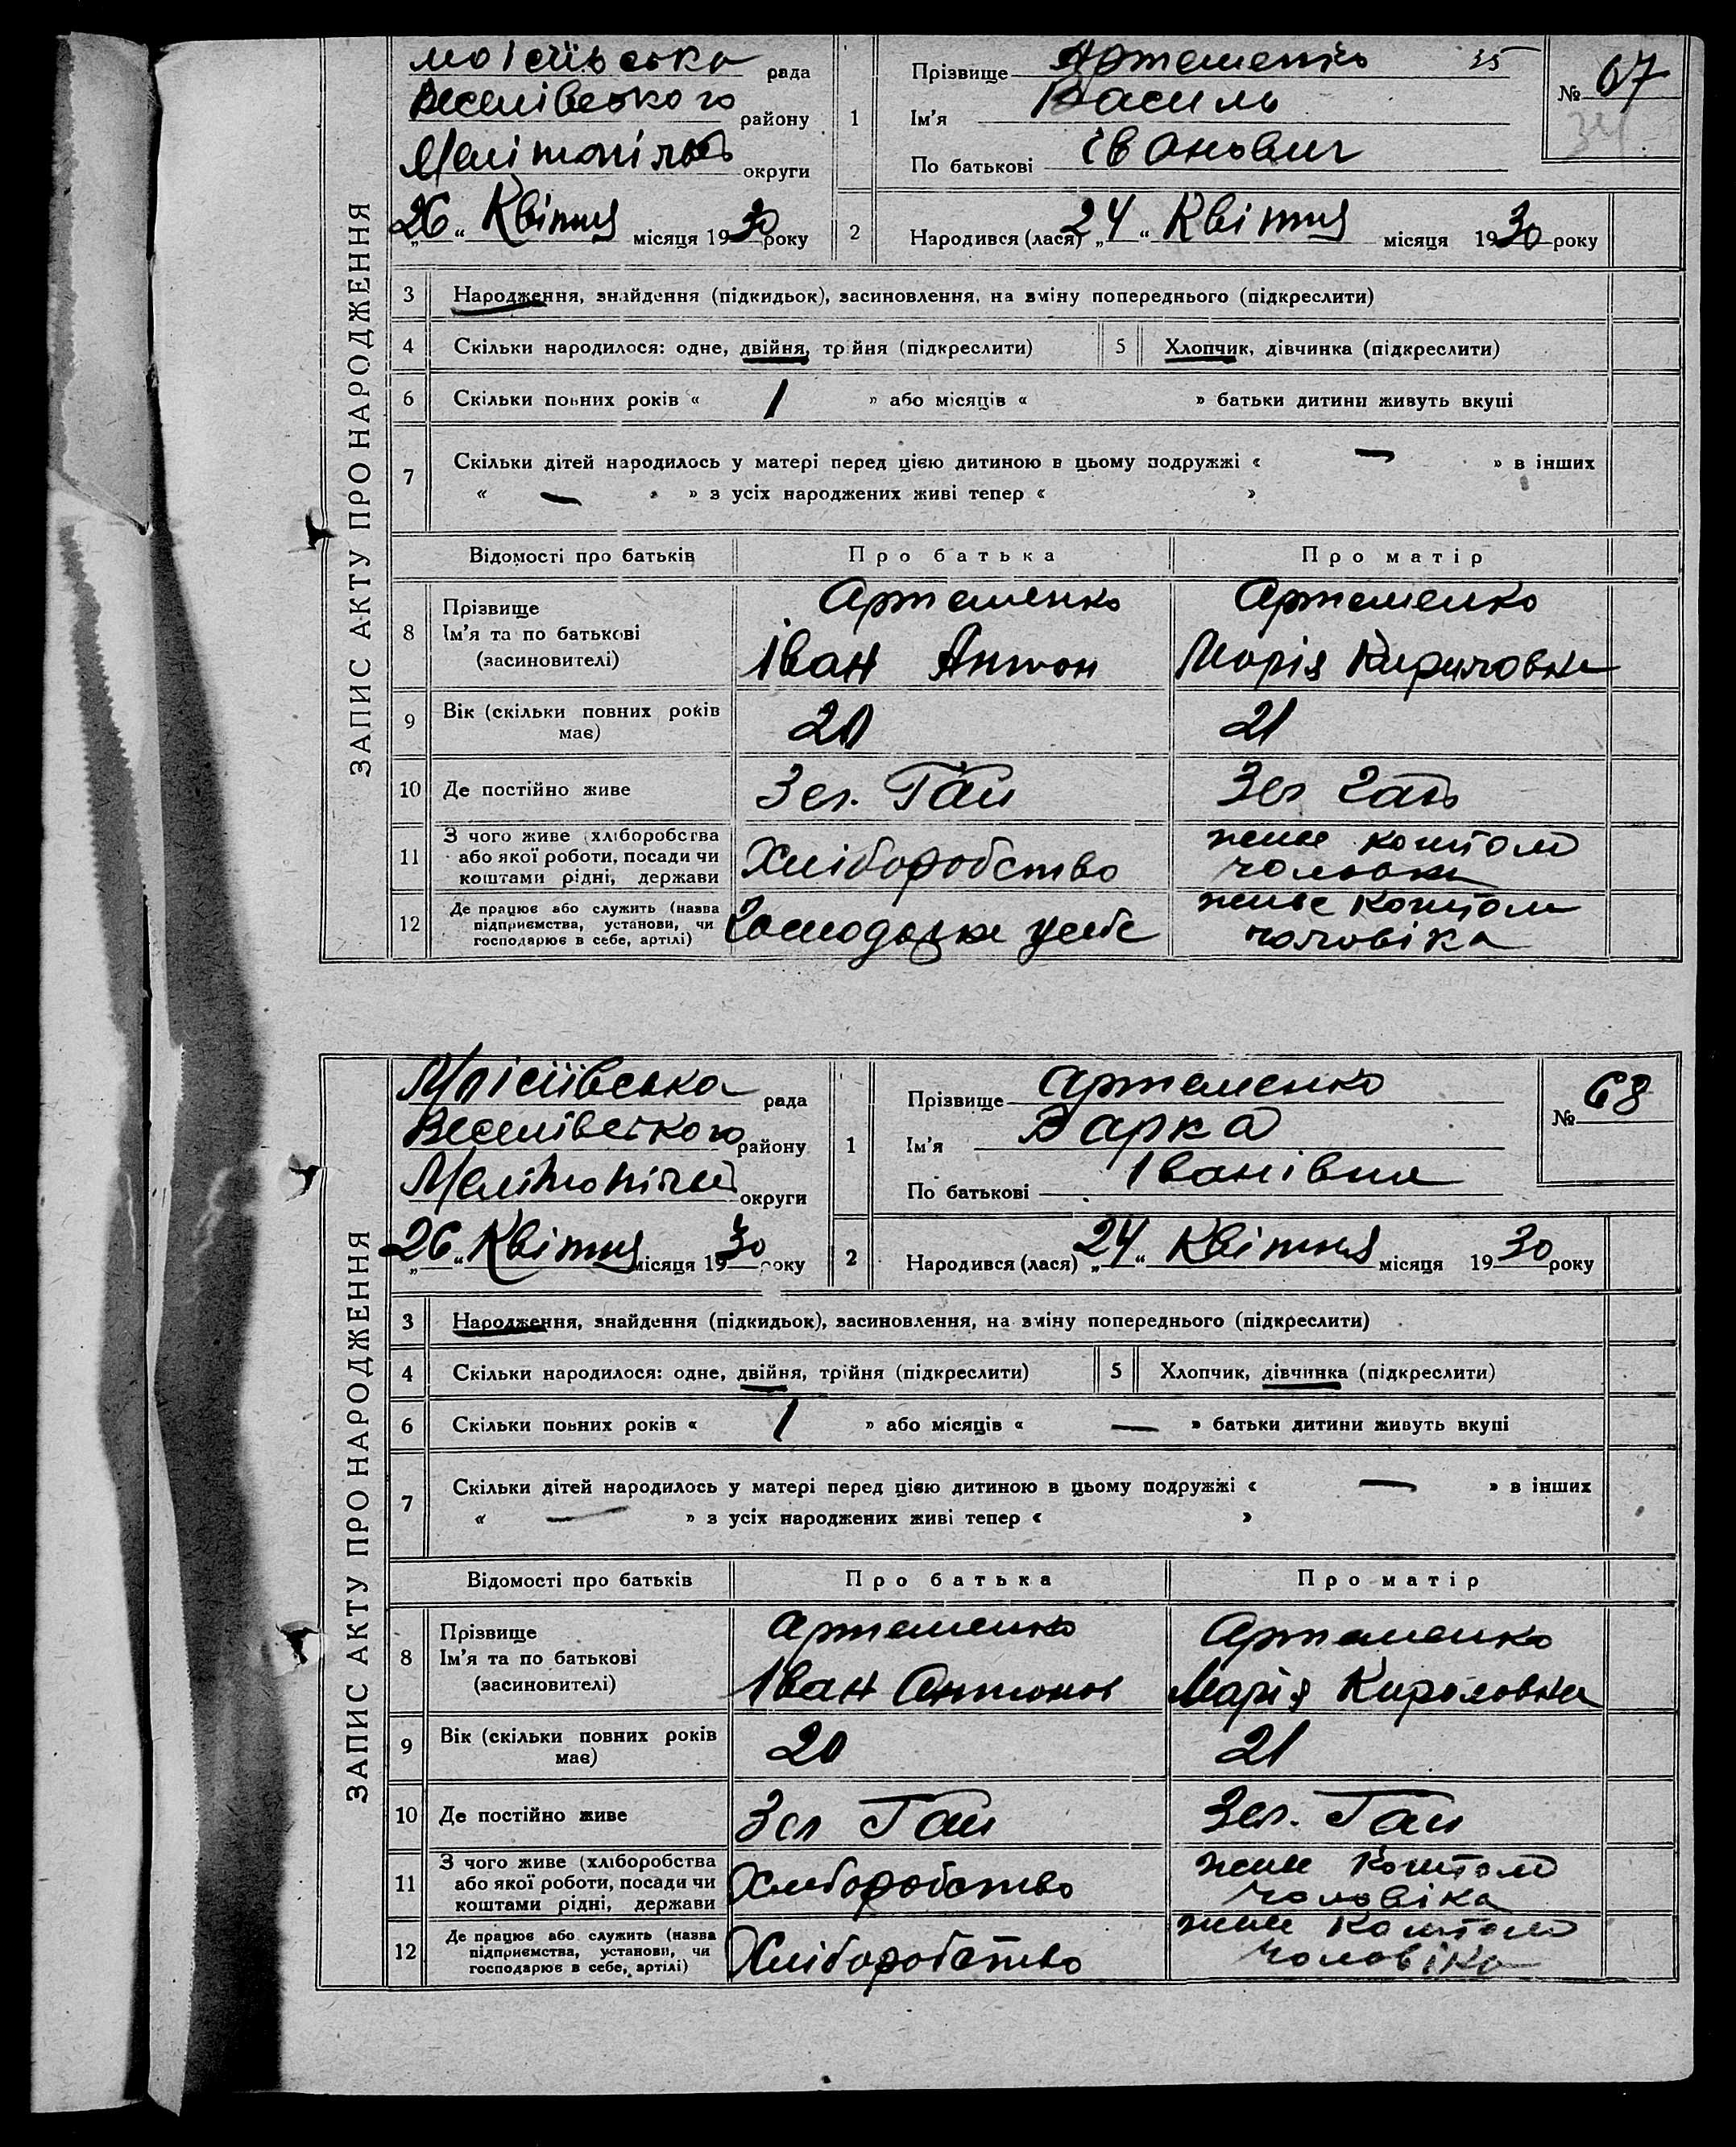 ЗАПИС АКТУ ПРО НАРОДЖЕННЯ
Моісіївська рада
Веселівського району
Мелітопільськ округи
„26“ Квітня місяця 1930 року
1 Прізвище Артеменко 35
Ім'я Василь
По батькові Іванович
№ 67
34
2 Народився (лася) „24“ Квітня місяця 1930 року
3 Народження, знайдення (підкидьок), засиновлення, на зміну попереднього (підкреслити)
4 Скільки народилося: одне, двійня, трійня (підкреслити)
5 Хлопчик, дівчинка (підкреслити)
6 Скільки повних років « 1 » або місяців « » батьки дитини живуть вкупі
7 Скільки дітей народилось у матері перед цією дитиною в цьому подружжі « — » в інших
« — » з усіх народжених живі тепер « »
Відомості про батьків Про батька Про матір
8 Прізвище Артеменко Артеменко
Ім'я та по батькові Іван Антон Марія Кириловна
(засиновителі)
9 Вік (скільки повних років має) 20 21
10 Де постійно живе Зел. Гай Зел Гай
11 З чого живе (хліборобства або якої роботи, посади чи коштами рідні, держави Хліборобство живе коштом чоловіка
12 Де працює або служить (назва підприємства, установи, чи господарює в себе, артілі) живе коштом чоловіка
ЗАПИС АКТУ ПРО НАРОДЖЕННЯ
Моісіївська рада
Веселівського району
Мелітопільськ округи
„26“ Квітня місяця 1930 року
1 Прізвище Артеменко
Ім'я Варка
По батькові Іванівна
№ 68
2 Народився (лася) „24“ Квітня місяця 1930 року
3 Народження, знайдення (підкидьок), засиновлення, на зміну попереднього (підкреслити)
4 Скільки народилося: одне, двійня, трійня (підкреслити)
5 Хлопчик, дівчинка (підкреслити)
6 Скільки повних років « 1 » або місяців « — » батьки дитини живуть вкупі
7 Скільки дітей народилось у матері перед цією дитиною в цьому подружжі « — » в інших
« — » з усіх народжених живі тепер « »
Відомості про батьків Про батька Про матір
8 Прізвище Артеменко Артеменко
Ім'я та по батькові Іван Антонов Марія Кириловна
(засиновителі)
9 Вік (скільки повних років має) 20 21
10 Де постійно живе Зел Гай Зел. Гай
11 З чого живе (хліборобства або якої роботи, посади чи коштами рідні, держави Хліборобство живе коштом чоловіка
12 Де працює або служить (назва підприємства, установи, чи господарює в себе, артілі) Хліборобство живе коштом чоловіка